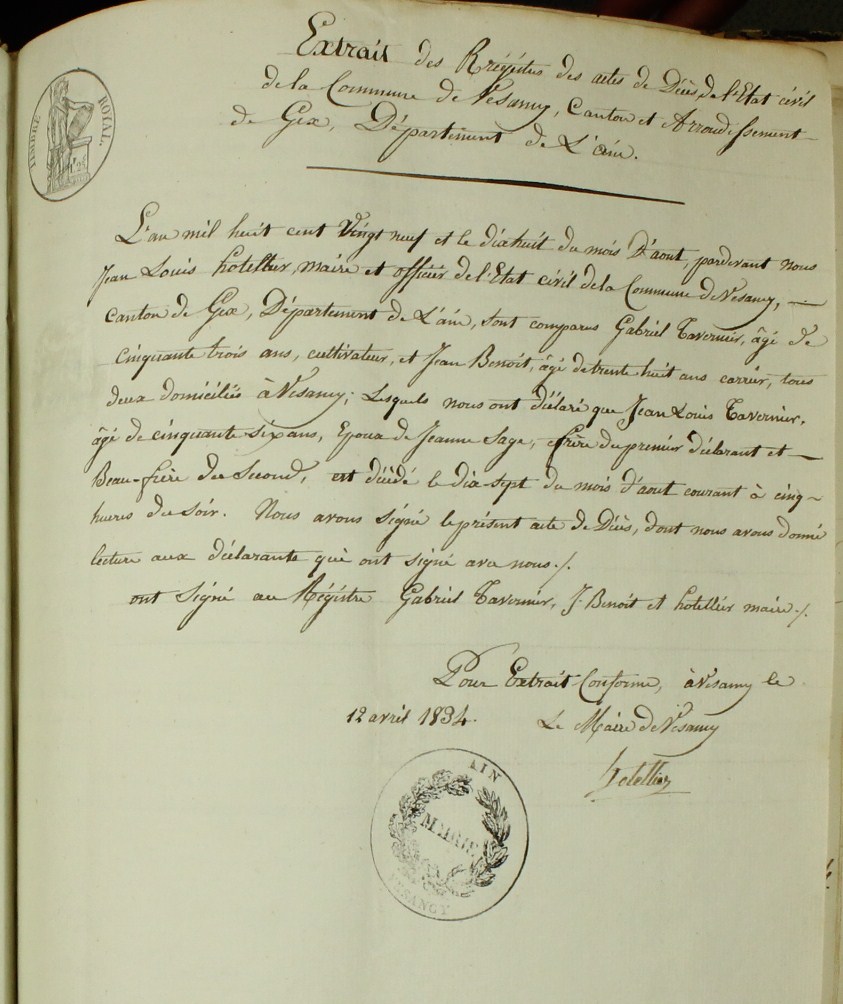 TIMBRE ROYAL.
Extrait des Régistres des actes de Décès de l'Etat civil
de la Commune de Vesancy, Canton et Arrondissement
de Gex, Département de L'ain.
L'an mil huit cent vingt neuf et le dixhuit du mois d'aout, pardevant nous
Jean Louis hotellier, maire et officier de l'Etat civil de la Commune de Vesancy, —
canton de Gex, Département de L'ain, sont comparus Gabriel Tavernier, âgé de
cinquante trois ans, cultivateur, et Jean Benoit, âgé de trente huit ans carrier, tous
deux domiciliés à Vesancy; Lesquels nous ont déclaré que Jean Louis Tavernier,
âgé de cinquante six ans, Epoux de Jeanne Sage, frère du premier déclarant et —
Beau-frère du Second, est décédé le dix-sept du mois d'aout courant à cinq
heures du soir. Nous avons signé le présent acte de Décès, dont nous avons donné
lecture aux déclarants qui ont signé avec nous ./.
ont signé au Régistre Gabriel Tavernier, J. Benoit et hotellier maire ./.
Pour Extrait Conforme, à Vesancy le
12 avril 1834. Le Maire de Vesancy
hotellier
AIN
MAIRIE
VESANCY